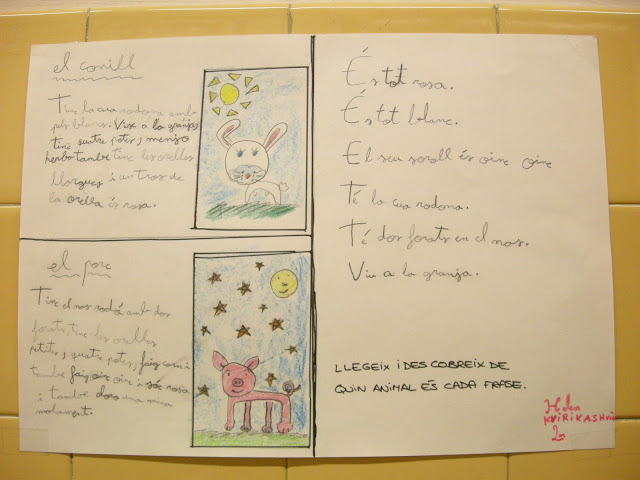 el conill
Tinc la cua rodona amb
pels blancs. Visc a la granja,
tinc quatre potes, menjo
herba també tinc les orelles
llargues i un tros de
la orella és rosa.
el porc
Tinc el nas rodó amb dos
forats, tinc les orelles
petites, quatre potes, faig
també faig oinc oinc i sóc rosa
i també una mica
malament.
És tot rosa.
És tot blanc.
El seu soroll és oinc oinc
Té la cua rodona.
Té dos forats en el nas.
Viu a la granja.
LLEGEIX I DESCOBREIX DE
QUIN ANIMAL ÉS CADA FRASE.
Helen
2n